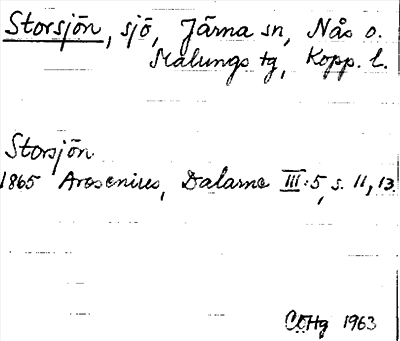 Storsjön, sjö, Järna sn, Nås o.
Malungs tg, Kopp. l.
Storsjön
1865 Arosenius, Dalarne III:5, s. 11, 13.
COHg 1963